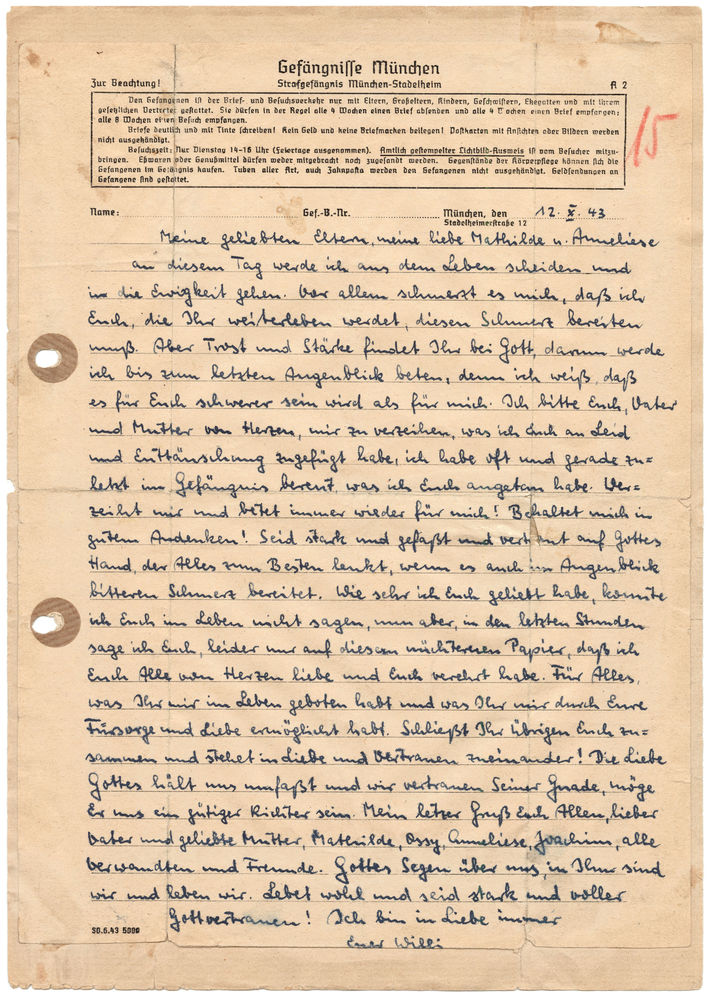 Gefängnisse München
Zur Beachtung! Strafgefängnis München-Stadelheim A 2
Den Gefangenen ist der Brief- und Besuchsverkehr nur mit Eltern, Großeltern, Kindern, Geschwistern, Ehegatten und mit ihrem
gesetzlichen Vertreter gestattet. Sie dürfen in der Regel alle 4 Wochen einen Brief absenden und alle 4 Wochen einen Brief empfangen;
alle 8 Wochen einen Besuch empfangen.
Briefe deutlich und mit Tinte schreiben! Kein Geld und keine Briefmarken beilegen! Postkarten mit Ansichten oder Bildern werden
nicht ausgehändigt.
Besuchszeit: Nur Dienstag 14-16 Uhr (Feiertage ausgenommen). Amtlich gestempelter Lichtbild-Ausweis ist vom Besucher mitzu-
bringen. Eßwaren oder Genußmittel dürfen weder mitgebracht noch zugesandt werden. Gegenstände der Körperpflege können sich die
Gefangenen im Gefängnis kaufen. Tuben aller Art, auch Zahnpasta werden den Gefangenen nicht ausgehändigt. Geldsendungen an
Gefangene sind gestattet.
15
Name: Gef.-B.-Nr. München, den 12. X. 43
Stadelheimerstraße 12
Meine geliebten Eltern, meine liebe Mathilde u. Anneliese
an diesem Tag werde ich aus dem Leben scheiden und
in die Ewigkeit gehen. Vor allem schmerzt es mich, daß ich
Euch, die Ihr weiterleben werdet, diesen Schmerz bereiten
muß. Aber Trost und Stärke findet Ihr bei Gott, darum werde
ich bis zum letzten Augenblick beten, denn ich weiß, daß
es für Euch schwerer sein wird als für mich. Ich bitte Euch, Vater
und Mutter von Herzen, mir zu verzeihen, was ich Euch an Leid
und Enttäuschung zugefügt habe, ich habe oft und gerade zu=
letzt im Gefängnis bereut, was ich Euch angetan habe. Ver=
zeiht mir und betet immer wieder für mich! Behaltet mich in
gutem Andenken! Seid stark und gefaßt und vertraut auf Gottes
Hand, der Alles zum Besten lenkt, wenn es auch im Augenblick
bitteren Schmerz bereitet. Wie sehr ich Euch geliebt habe, konnte
ich Euch im Leben nicht sagen, nun aber, in den letzten Stunden
sage ich Euch, leider nur auf diesem nüchternen Papier, daß ich
Euch Alle von Herzen liebe und Euch verehrt habe. Für Alles,
was Ihr mir im Leben geboten habt und was Ihr mir durch Eure
Fürsorge und Liebe ermöglicht habt. Schließt Ihr übrigen Euch zu=
sammen und stehet in Liebe und Vertrauen zueinander! Die Liebe
Gottes hält uns umfaßt und wir vertrauen Seiner Gnade, möge
Er uns ein gütiger Richter sein. Mein letzer Gruß Euch Allen, lieber
Vater und geliebte Mutter, Mathilde, Ossy, Anneliese, Joachim, alle
Verwandten und Freunde. Gottes Segen über uns, in Ihm sind
wir und leben wir. Lebet wohl und seid stark und voller
Gottvertrauen! Ich bin in Liebe immer
Euer Willi
30.6.43 5000